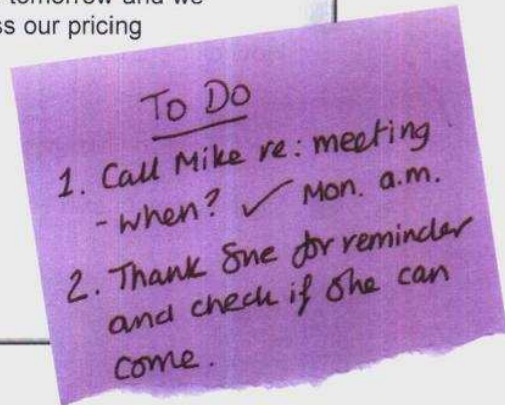 tomorrow and we
ss our pricing
To Do
1. Call Mike re: meeting
- when? ✓ Mon. a.m.
2. Thank Sue for reminder
and check if she can
come.